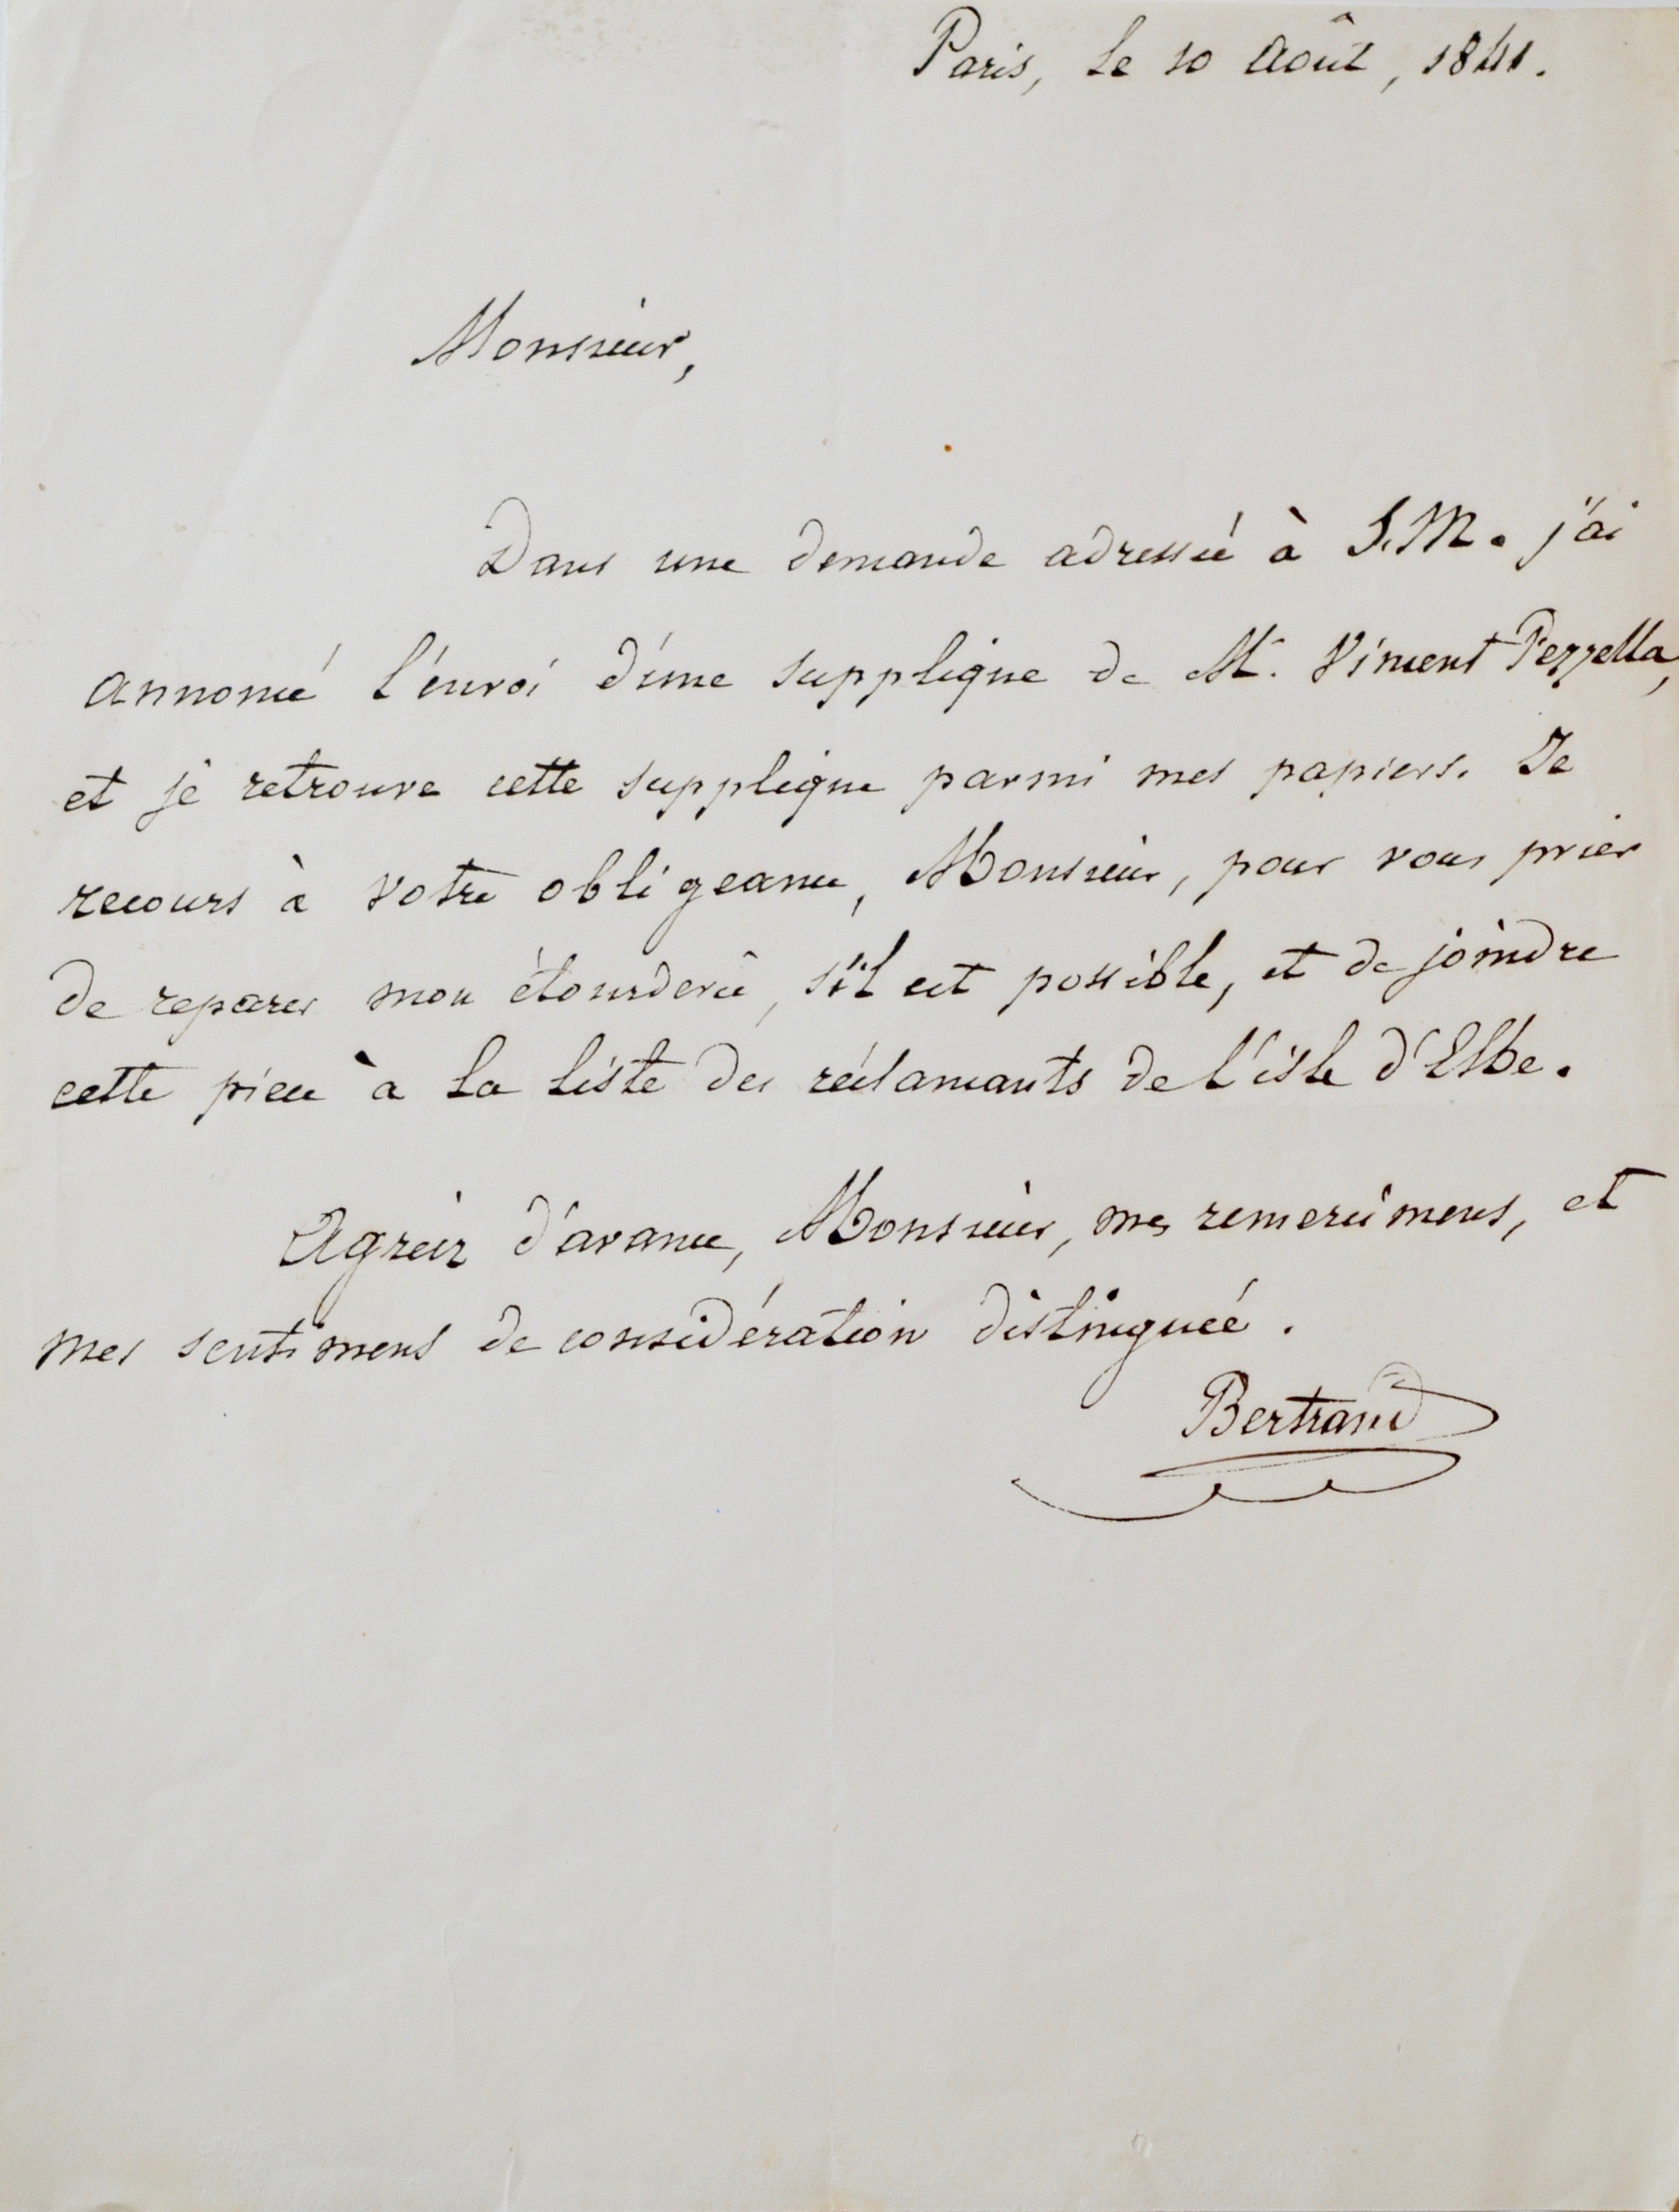 Paris, le 10 Août, 1841.
Monsieur,
Dans une demande adressée à S.M. j'ai
annoncé l'envoi d'une supplique de Mr. Vincent Pezzella,
et je retrouve cette supplique parmi mes papiers. Je
recours à votre obligeance, Monsieur, pour vous prier
de reparer mon étourderie, s'il est possible, et de joindre
cette piece à la liste des réclamants de l'isle d'Elbe.
Agréez d'avance, Monsieur, mes remercîmens, et
mes sentimens de considération distinguée.
Bertrand